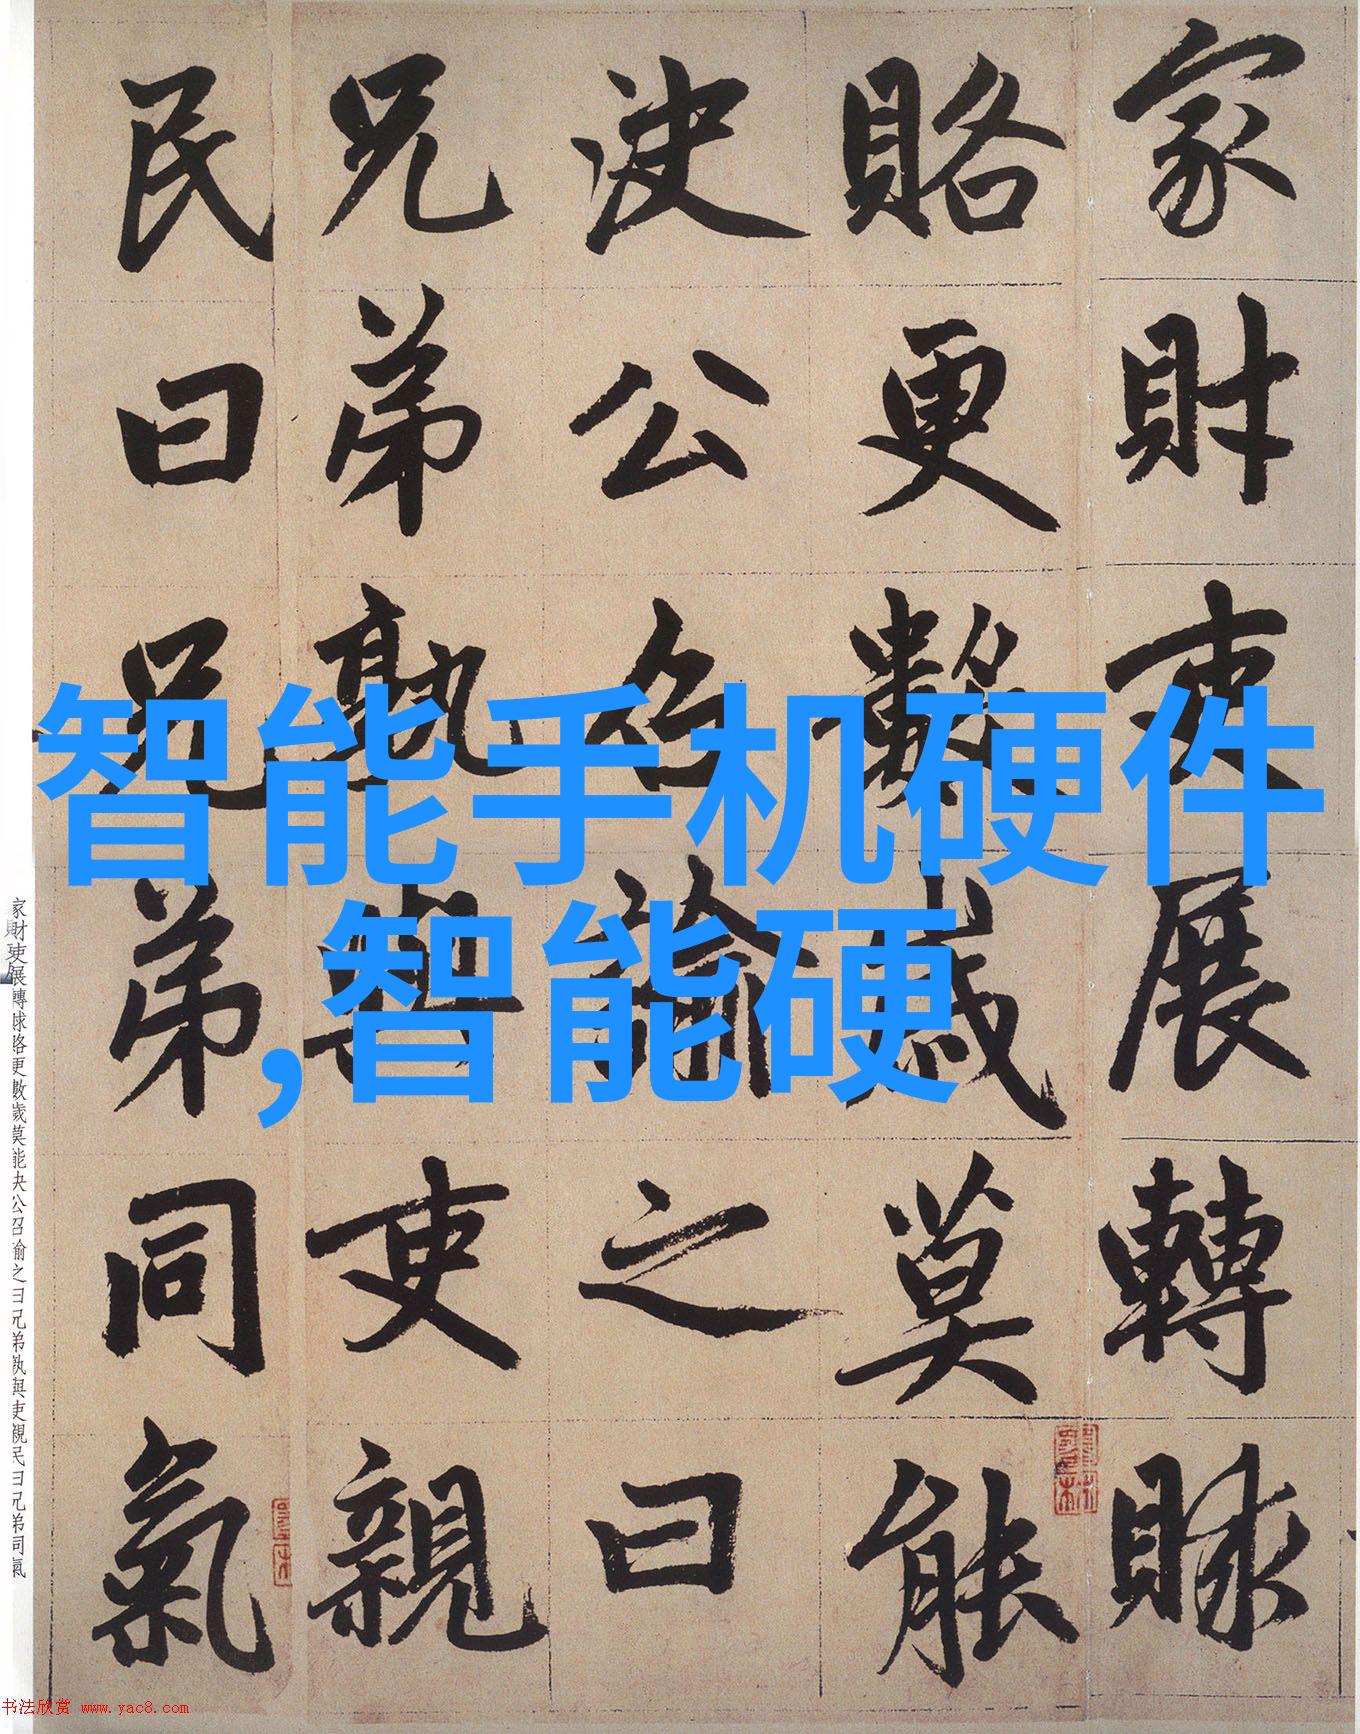 家財吏展轉賕
賂更數歲莫能
決公召諭之曰
兄弟孰與吏親
民曰兄弟同氣
智能手机硬件
,智能硬
家財吏展轉賕賂更數歲莫能決公召諭之曰兄弟孰與吏親民曰兄弟同氣
书法欣赏 www.yac8.com